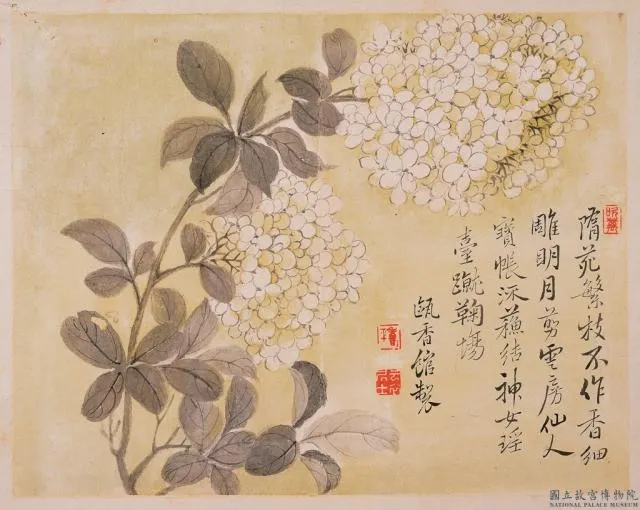 隋苑繁枝不作香細
雕明月剪雲房仙人
寶帳流蘓結神女瑶
臺蹴鞠場
甌香館製
國立故宮博物院
NATIONAL PALACE MUSEUM